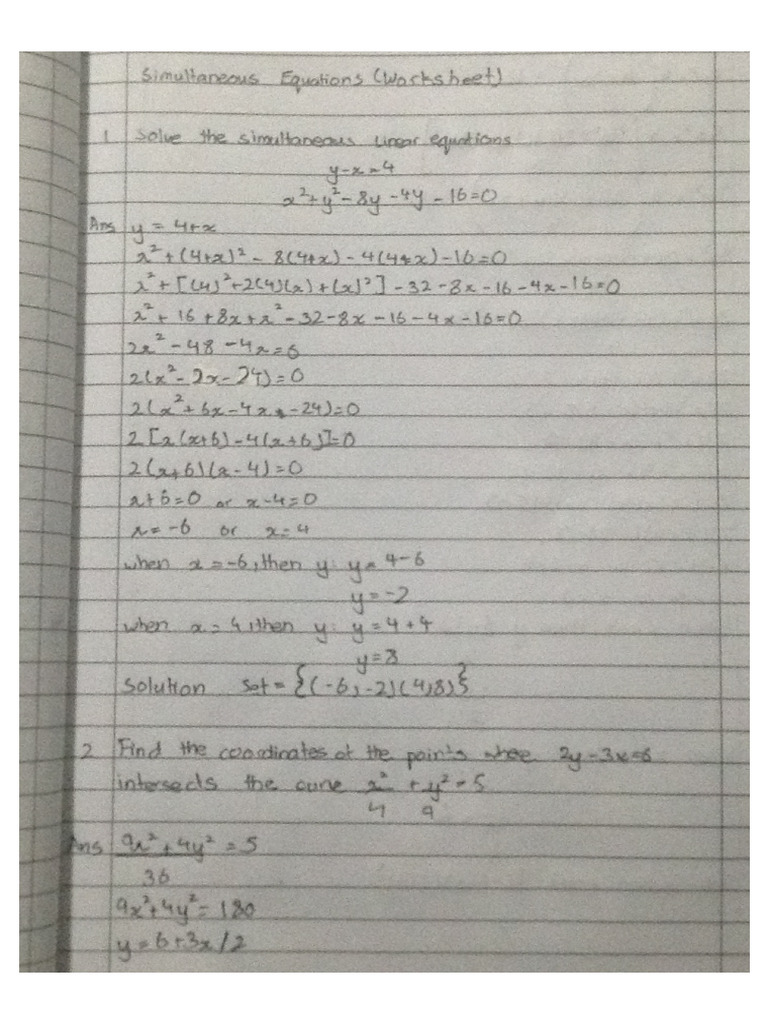 Simultaneous Equations (Worksheet)
1 Solve the simultaneous linear equations
y-x=4
x²+y²-8y-4y-16=0
Ans y = 4+x
x²+(4+x)²-8(4+x)-4(4+x)-16=0
x²+[(4)²+2(4)(x)+(x)²]-32-8x-16-4x-16=0
x²+16+8x+x²-32-8x-16-4x-16=0
2x²-48-4x=0
2(x²-2x-24)=0
2(x²+6x-4x-24)=0
2[x(x+6)-4(x+6)]=0
2(x+6)(x-4)=0
x+6=0 or x-4=0
x=-6 or x=4
when x=-6, then y: y=4-6
y=-2
when x=4, then y: y=4+4
y=8
Solution set = {(-6,-2)(4,8)}
2 Find the coordinates of the points whee 2y-3x=6
intersects the curve x²/4 + y²/9 = 5
Ans 9x²+4y² = 5
36
9x²+4y²=180
y=6+3x/2